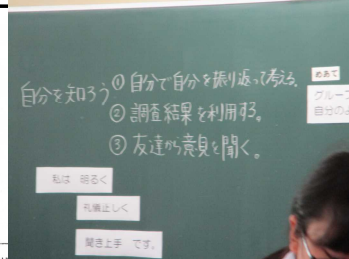 自分を知ろう
① 自分で自分を振り返って考える。
② 調査結果を利用する。
③ 友達から意見を聞く。
めあて
グループ
自分のよ
私は 明るく
礼儀正しく
聞き上手 です。